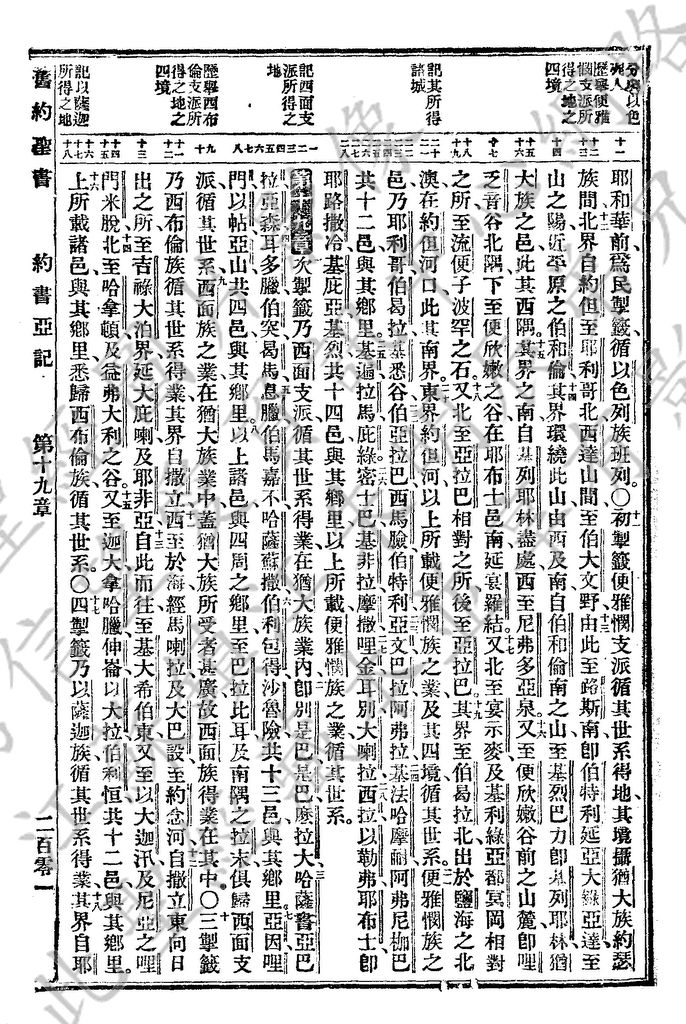 分與以色
列人
歷舉便雅
憫支派所
得之地之
四境
記其所得
諸城
記西面支
派所得之
地
歷舉西布
倫支派所
得之地之
四境
記以薩迦
所得之地
耶和華前爲民掣籤循以色列族班列〇初掣籤便雅憫支派循其世系得地其境攝猶大族約瑟
族間北界自約但至耶利哥北西達山間至伯大文野由此至路斯南卽伯特利延亞大綠亞達至
山之陽近平原之伯和倫其界環繞此山由西及南自伯和倫南之山至基烈巴力卽基列耶林猶
大族之邑此其西隅其界之南自基列耶林盡處西至尼弗多亞泉又至便欣嫩谷前之山麓卽哩
乏音谷北隅下至便欣嫩之谷在耶布士邑南延寔羅結又北至寔示麥及基利綠亞鄀冥岡相對
之所至流便子波罕之石又北至亞拉巴相對之所後至亞拉巴其界至伯曷拉北出於鹽海之北
澳在約但河口此其南界東界約但河以上所載便雅憫族之業及其四境循其世系便雅憫族之
邑乃耶利哥伯曷拉基悉谷伯亞拉巴西馬臉伯特利亞文巴拉阿弗拉基法哈摩耐阿弗尼枷巴
共十二邑與其鄉里基遍拉馬庇綠密士巴基非拉摩撒哩金耳別大喇拉西拉以勒弗耶布士卽
耶路撒冷基庇亞基烈共十四邑與其鄉里以上所載便雅憫族之業循其世系
第十九章次掣籤乃西面支派循其世系得業在猶大族業內卽別是巴是巴摩拉大哈薩書亞巴
拉亞森耳多臘伯突曷馬息臘伯馬嘉不哈薩蘇撒伯利包得沙魯險共十三邑與其鄉里亞因哩
門以帖亞山共四邑與其鄉里以上諸邑與四周之鄉里至巴拉比耳及南隅之拉末俱歸西面支
派循其世系西面族之業在猶大族業中蓋猶大族所受者甚廣故西面族得業在其中〇三掣籤
乃西布倫族循其世系得業其界自撒立西至於海經馬喇拉及大巴設至約念河自撒立東向日
出之所至吉祿大泊界延大庇喇及耶非亞自此而往至基大希伯東又至以大迦汛及尼亞之哩
門米脫北至哈拿頓及益弗大利之谷又至迦大拿哈臘伸崙以大拉伯利恒共十二邑與其鄉里
上所載諸邑與其鄉里悉歸西布倫族循其世系〇四掣籤乃以薩迦族循其世系得業其界自耶
舊約聖書 約書亞記 第十九章 二百零一